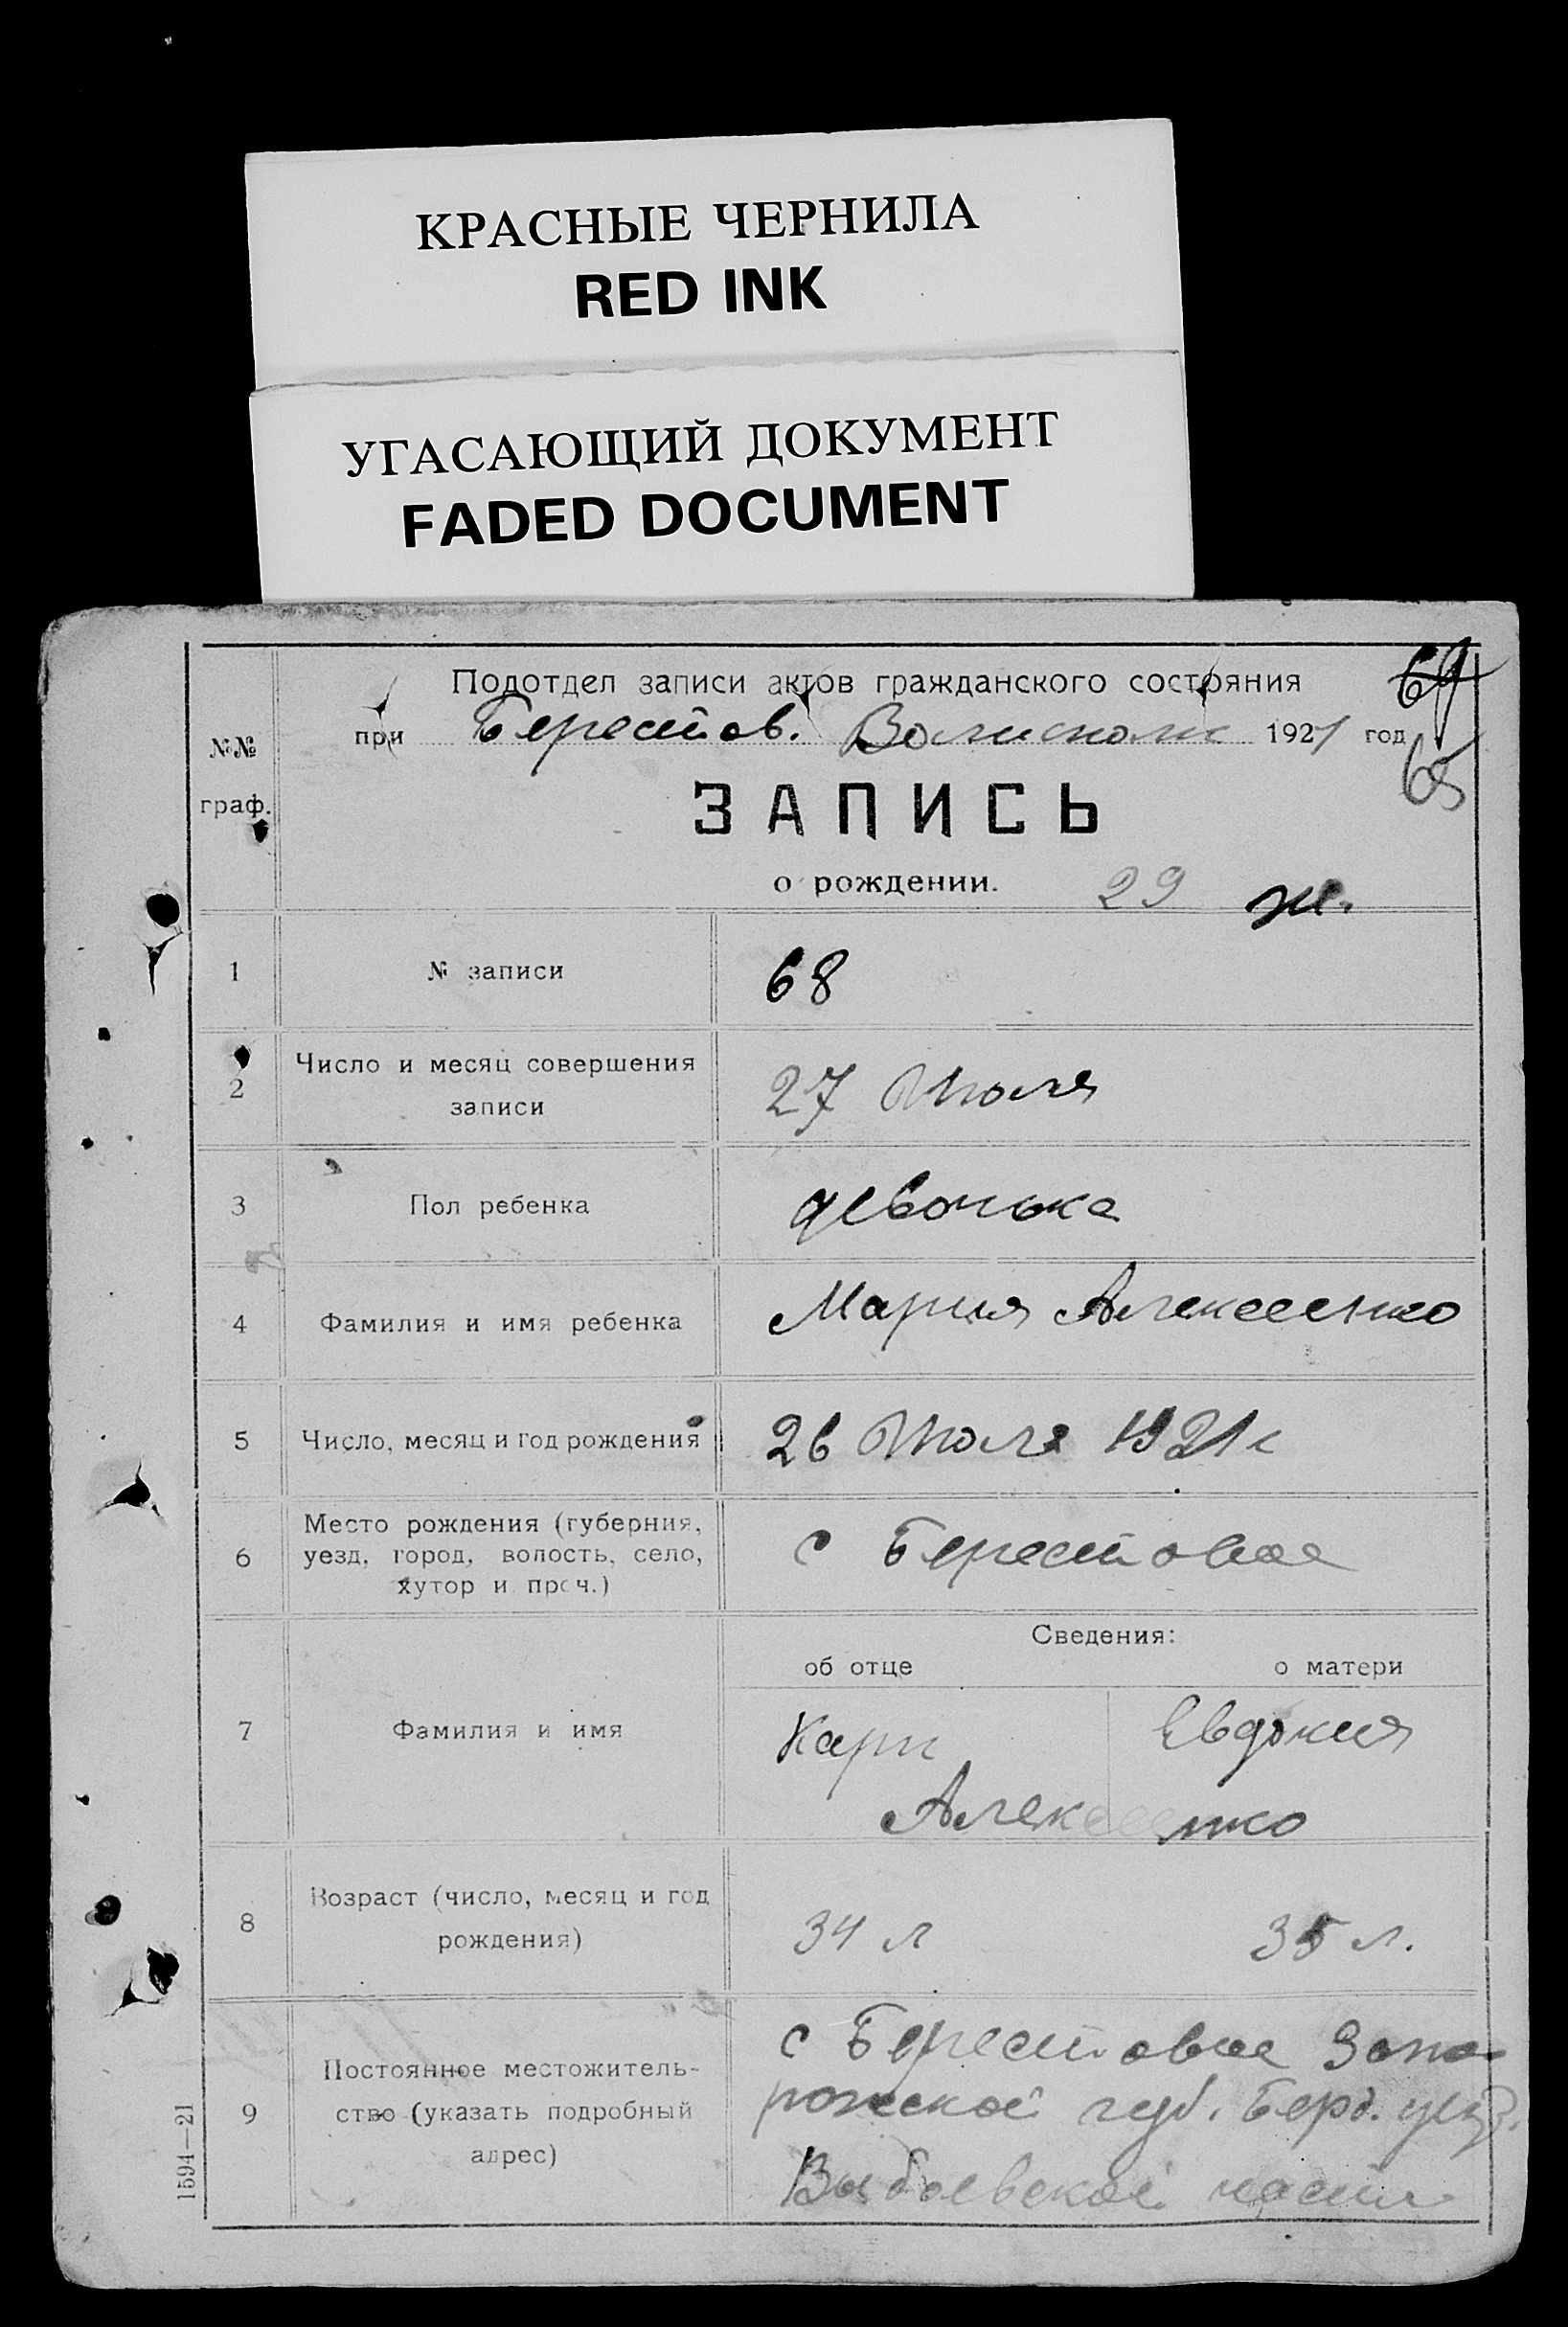 КРАСНЫЕ ЧЕРНИЛА
RED INK
УГАСАЮЩИЙ ДОКУМЕНТ
FADED DOCUMENT
69
Подотдел записи актов гражданского состояния
при Берестов. Волисполк 1921 год
65
№№
граф.
ЗАПИСЬ
о рождении. 29 ж.
1 № записи 68
2 Число и месяц совершения
записи 27 Июля
3 Пол ребенка девочька
4 Фамилия и имя ребенка Мария Алексеенко
5 Число, месяц и год рождения 26 Июля 1921 г
6 Место рождения (губерния,
уезд, город, волость, село,
хутор и проч.) с Берестовое
Сведения:
об отце о матери
7 Фамилия и имя Карп Евдокия
Алексеенко
8 Возраст (число, месяц и год
рождения) 34 л 35 л.
9 Постоянное местожитель-
ство (указать подробный
адрес)
с Берестовое Запо-
рожской губ. Берд. уезд.
части
1594—21